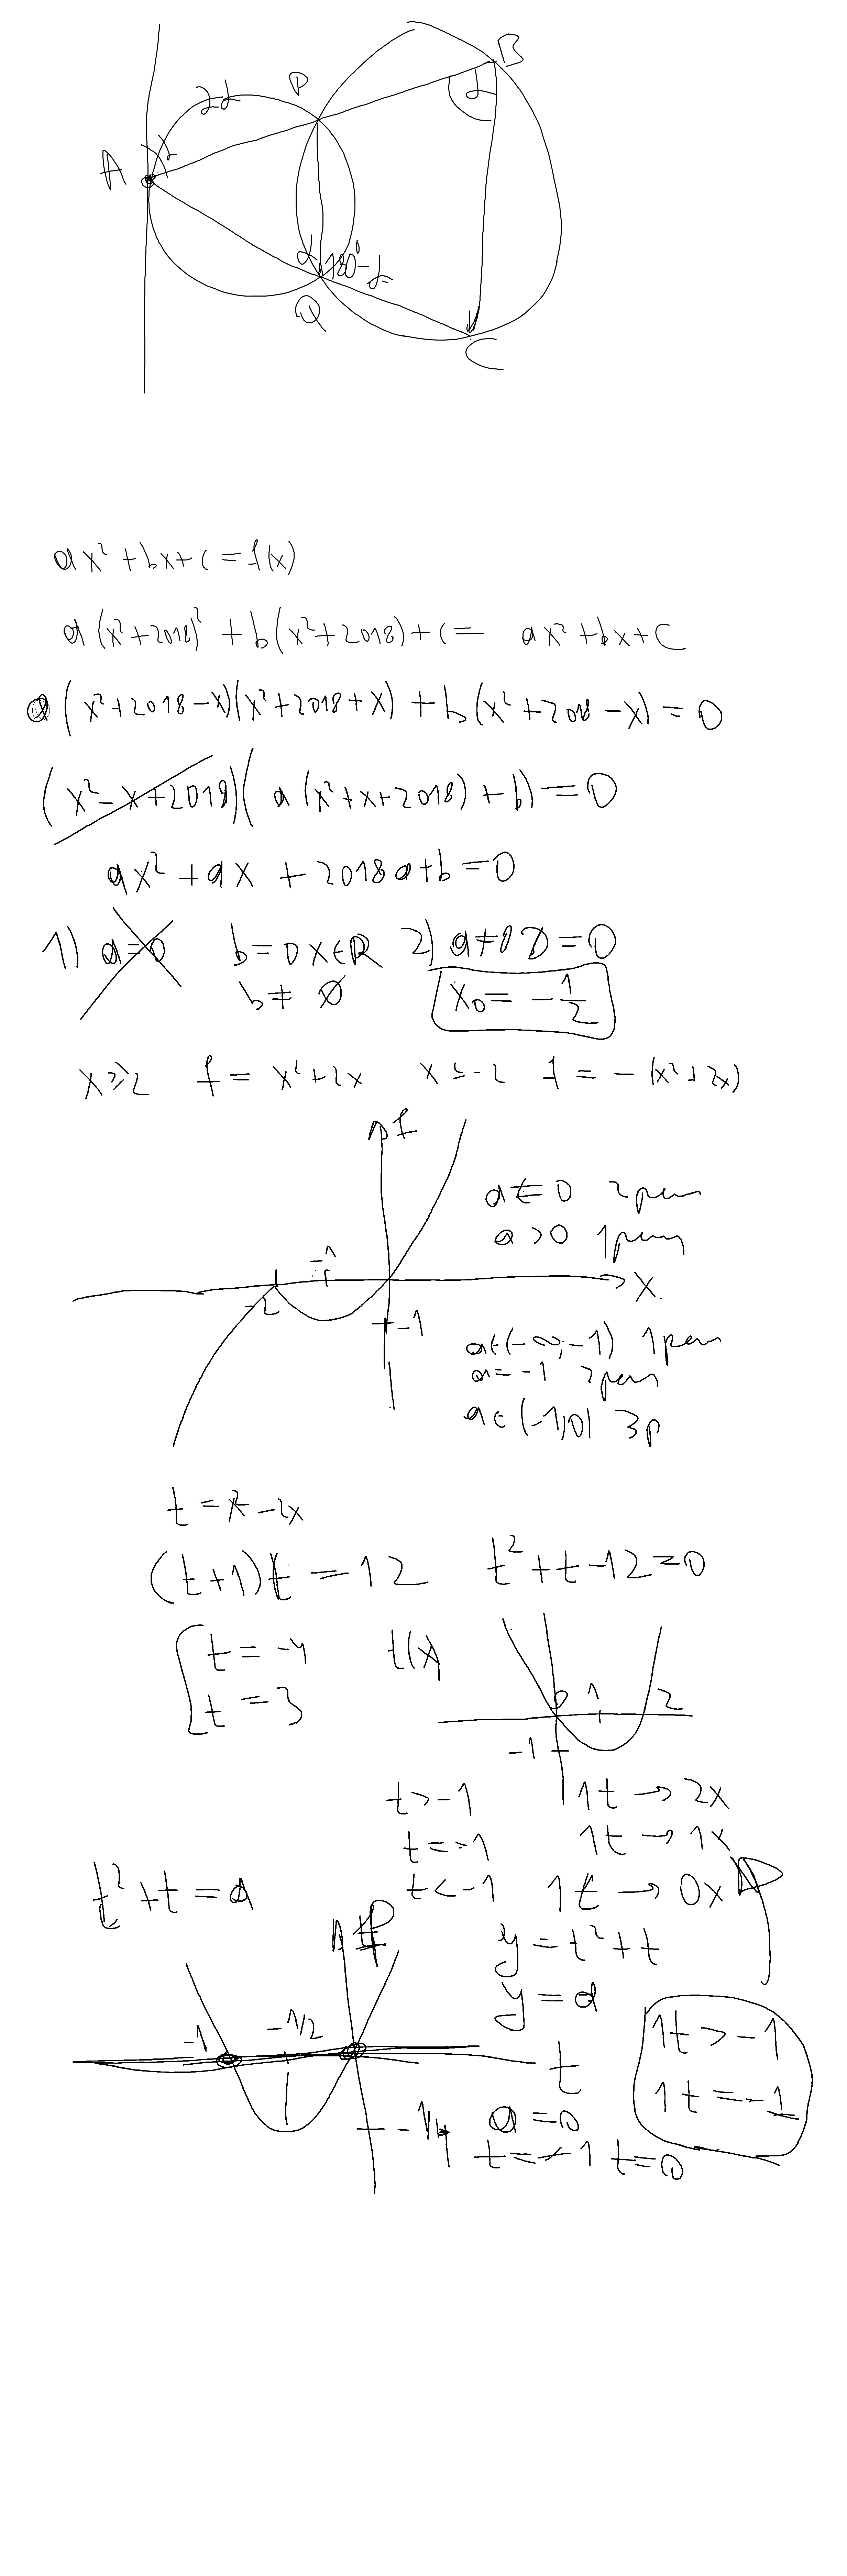 P
B
2α
α
A
α
α 180°-α
Q
C
ax² + bx + c = f(x)
a(x²+2018)² + b(x²+2018) + c = ax² + bx + c
a(x²+2018-x)(x²+2018+x) + b(x²+2018-x) = 0
(x²-x+2018)(a(x²+x+2018)+b) = 0
ax² + ax + 2018a + b = 0
1) a=0 b=0 x∈R 2) a≠0 D=0
b≠ ∅ x₀ = -1/2
f = x²+2x f = -(x²+2x)
f
a>0
-1
-2
x
-1
a∈(-∞;-1)
a=-1
a∈(-1,0) 3р
t = x²-2x
(t+1)t = 12 t²+t-12=0
t = -4 t(x)
t = 3
0 1 2
-1
t>-1 1t → 2x
t=-1 1t → 1x
t<-1 1t → 0x
t²+t = a
y = t²+t
y = a
-1 -1/2
1t > -1
t
1t = -1
-1/4 a=0
t=-1 t=0